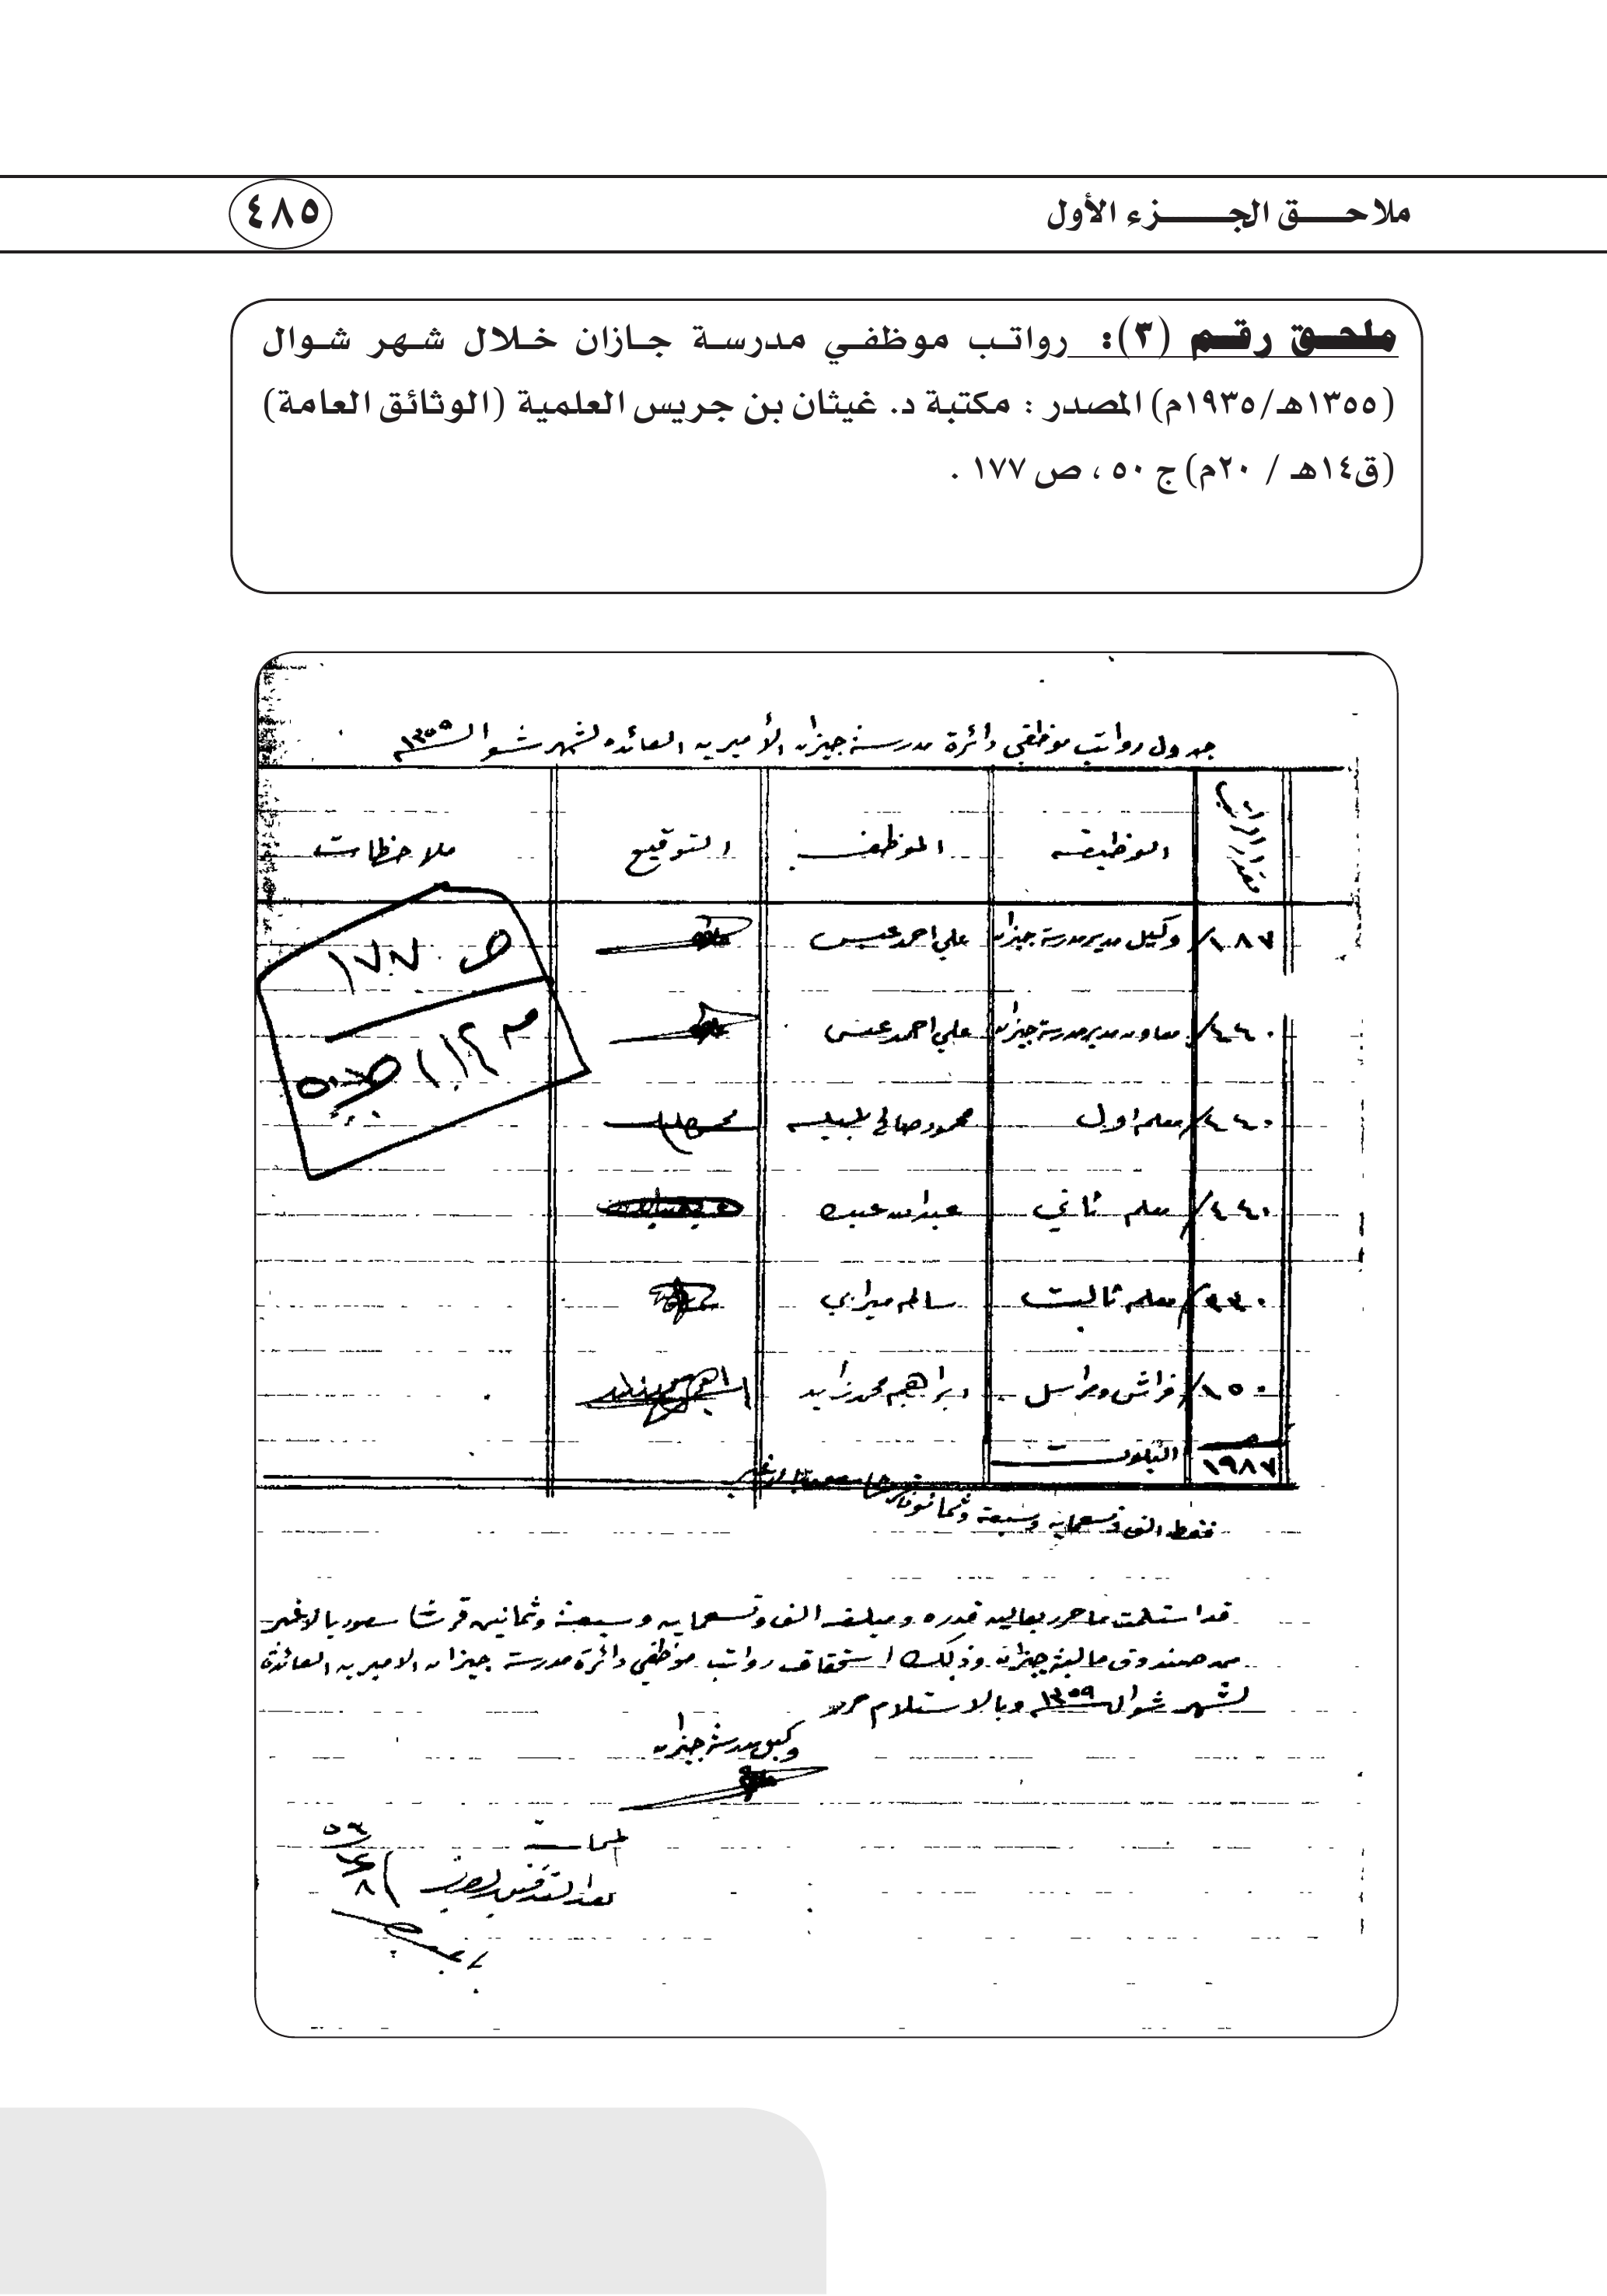 ملاحـــق الجـــــزء الأول
٤٨٥
ملحـق رقـم (٣): رواتـب موظفـي مدرسـة جـازان خـلال شـهر شـوال
(١٣٥٥هـ/١٩٣٥م) المصدر : مكتبة د. غيثان بن جريس العلمية (الوثائق العامة)
(ق١٤هـ / ٢٠م) ج ٥٠ ، ص ١٧٧ .
جدول رواتب موظفي دائرة مدرسة جيزان الأميريه العائده لشهر شوال
مقدار الراتب الوظيفه الموظف التوقيع ملاحظات
١٨٧/ وكيل مدير مدرسة جيزان علي احمد عيسى
٤٤٠/ معاون مدير مدرسة جيزان علي احمد عيسى
٤٤٠/ معلم اول محمود صالح
٤٤٠/ معلم ثاني عبدالله
٣٣٠/ معلم ثالث سالم
١٥٠/ فراش ومراسل ابراهيم محمد زايد
١٩٨٧
ص ١٧٧
فقط الف وتسعمايه وسبعة وثمانون
قد استلمت ما حرر بعاليه قدره ومبلغه الف وتسعمايه وسبعة وثمانين قرشا سعوديا لاغير
من صندوق مالية جيزان وذلك استحقاق رواتب موظفي دائرة مدرسة جيزان الاميريه العائدة
لشهر شوال وبالاستلام حرر
وكيل مدرسة جيزان